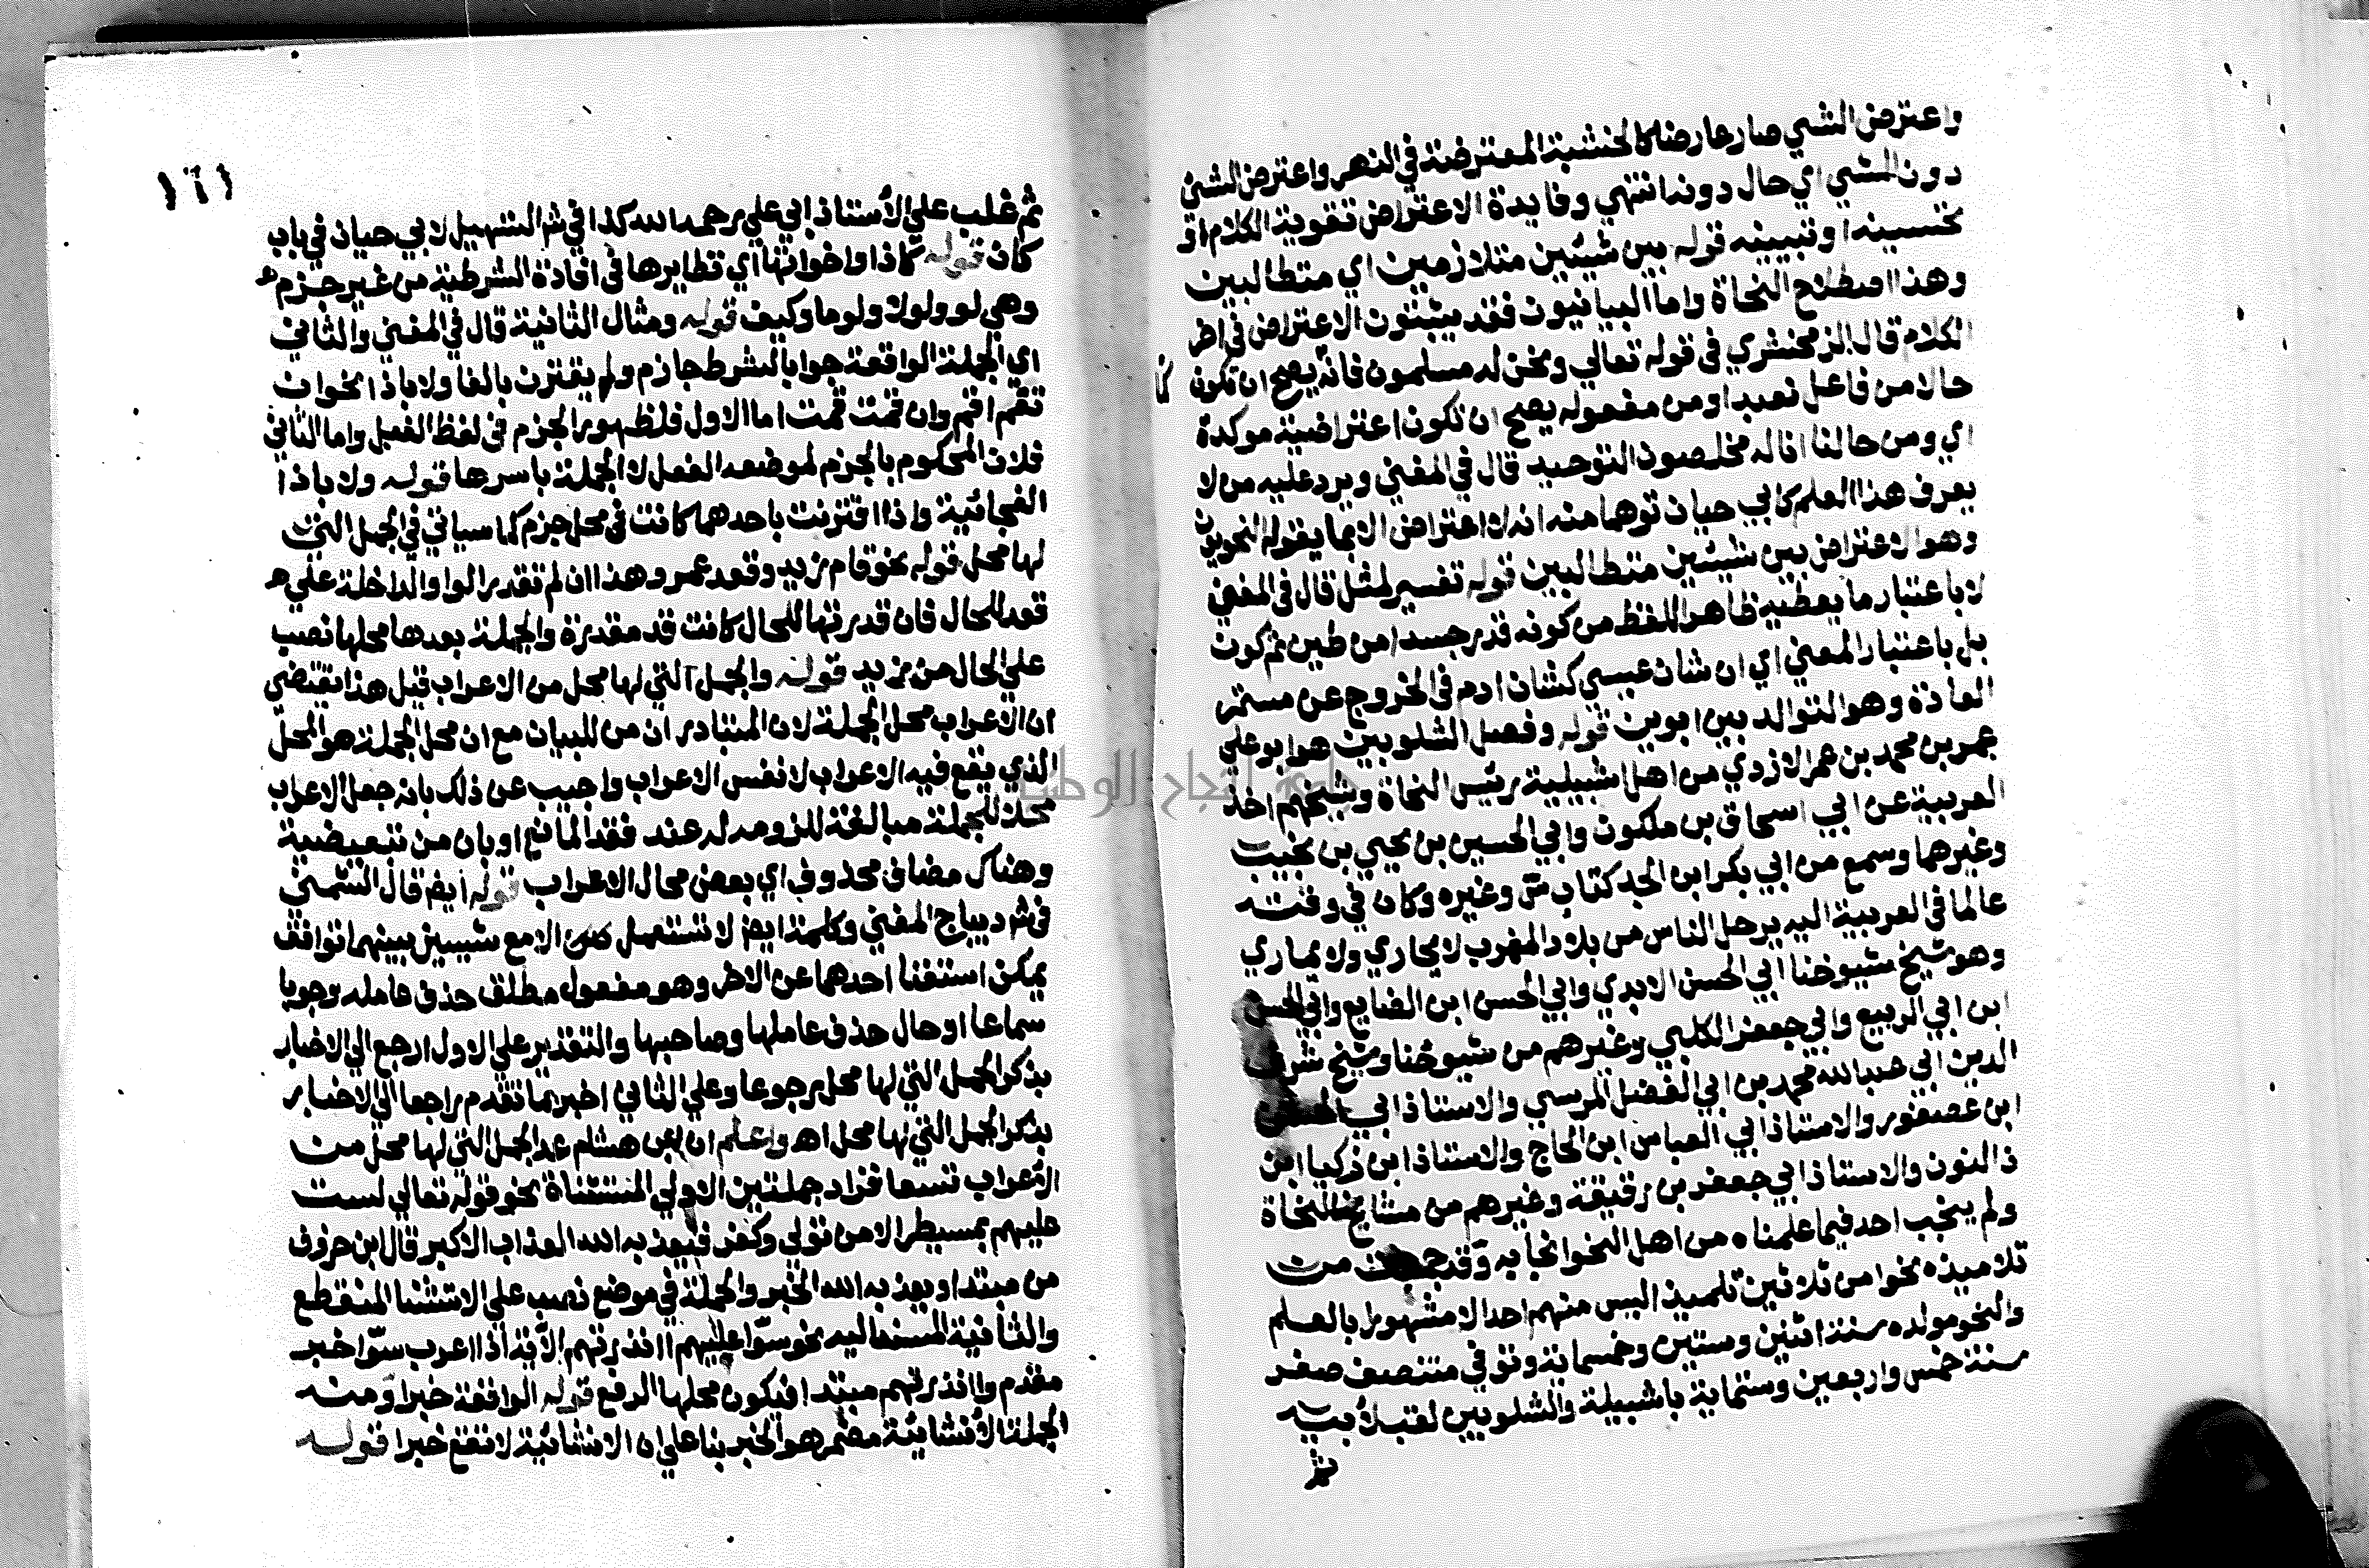 واعترض الشي صار عارضا كالخشبة المعترضة في النهر واعترض الشئ
دون الشي اي حال دونه انتهي وفايدة الاعتراض تقوية الكلام او
تحسينه او تبيينه قوله بين شيئين متلازمين اي متطالبين
وهذا اصطلاح النحاة واما البيانيون فقد يثبتون الاعتراض في اخر
الكلام قال الزمخشري في قوله تعالي ونحن له مسلمون فانه يصح ان تكون
حالا من فاعل نعبد او من مفعوله يصح ان تكون اعتراضية موكدة
اي ومن حالنا انا له مخلصون التوحيد قال في المغني ويرد عليه من لا
يعرف هذا العلم كابي حيان توهما منه انه لا اعتراض الا بما يقوله النحويون
وهو الاعتراض بين شيئين متطالبين قوله تفسير لمثل قال في المغني
لا باعتبار ما يعطيه ظاهر اللفظ من كونه قدر جسدا من طين ثم كون
بل باعتبار المعني اي ان شان عيسي كشان ادم في الخروج عن مستمر
العادة وهو التوالد بين ابوين قوله وفصل الشلوبين هو ابو علي
عمر بن محمد بن عمر الازدي من اهل اشبيلية رئيس النحاة وشيخهم اخذ
العربية عن ابي اسحاق بن ملكون وابي الحسين بن يحيي بن نجيب
وغيرهما وسمع من ابي بكر ابن الجد كتاب س وغيره وكان في وقته
عالما في العربية اليه يرحل الناس من بلاد المغرب لا يجاري ولا يماري
وهو شيخ شيوخنا ابي الحسن الابدي وابي الحسن ابن الضايع وابي الحسن
ابن ابي الربيع وابي جعفر الكلبي وغيرهم من شيوخنا وشيخ شرف
الدين ابي عبدالله محمد بن ابي الفضل المرسي والاستاذ ابي الحسن
ابن عصفور والاستاذ ابي العباس ابن الحاج والاستاذ ابن زكريا ابن
ذا النون والاستاذ ابي جعفر بن رقيقة وغيرهم من مشايخ النحاة
ولم ينجب احد فيما علمناه من اهل النحو انجابه وقد من
تلاميذه نحوا من ثلاثين تلميذ اليس منهم احد الا مشهورا بالعلم
والنحو مولده سنة اثنين وستين وخمسماية وتوفي منتصف صفر
سنة خمس واربعين وستماية باشبيلة والشلوبين لقب لابيه
ثم
١٦١
ثم غلب علي الاستاذ ابي علي رحمه الله كذا في ش التسهيل لابي حيان في باب
كان قوله كاذا واخواتها اي نظايرها في افادة الشرطية من غير جزم
وهي لو ولولا ولوما وكيف قوله ومثال الثانية قال في المغني والثاني
اي الجملة الواقعة جوابا لشرط جازم ولم يقترن بالفا ولا باذا نحو ان
تقم اقم وان قمت قمت اما الاول فلظهور الجزم في لفظ الفعل واما الثاني
فلان المحكوم بالجزم لموضعه الفعل لا الجملة باسرها قوله ولا باذا
الفجائية واذا اقترنت باحدهما كانت في محل جزم كما سياتي في الجمل التي
لها محل قوله نحو قام زيد وقعد عمرو هذا ان لم تقدر الواو الداخلة علي
قعد للحال فان قدرتها للحال كانت قد مقدرة والجملة بعدها محلها نصب
علي الحال من زيد قوله والجمل التي لها محل من الاعراب قيل هذا يقتضي
ان الاعراب محل الجملة لان المتبادر ان من للبيان مع ان محل الجملة هو المحل
الذي يقع فيه الاعراب لا نفس الاعراب واجيب عن ذلك بانه جعل الاعراب
محلا للجملة مبالغة للزومه له عند فقد المانع او بان من تبعيضية
وهناك مضاف محذوف اي بعض محال الاعراب قوله ايض قال الشمني
في ش ديباج المغني وكلمة ايض لا تستعمل الا مع شيين بينهما توافق
يمكن استغنا احدهما عن الاخر وهو مفعول مطلق حذف عامله وجوبا
سماعا او حال حذف عاملها وصاحبها والتقدير علي الاول ارجع الي الاخبار
بذكر الجمل التي لها محل رجوعا وعلي الثاني اخبر بما تقدم راجعا الي الاخبار
بذكر الجمل التي لها محل اهـ واعلم ان ابن هشام عد الجمل التي لها محل من
الاعراب تسعا فزاد جملتين الاولي المستثناة نحو قوله تعالي لست
عليهم بمسيطر الا من تولي وكفر فيعذبه الله العذاب الاكبر قال ابن خروف
من مبتدا ويعذبه الله الخبر والجملة في موضع نصب علي الاستثنا المنقطع
والثانية المسند اليه نحو سوا عليهم اانذرتهم الاية اذا اعرب سوا خبر
مقدم واانذرتهم مبتدا فتكون محلها الرفع قوله الواقعة خبرا ومنه
الجملة الانشائية مضمر هو الخبر بنا علي ان الانشائية لا تقع خبرا قوله